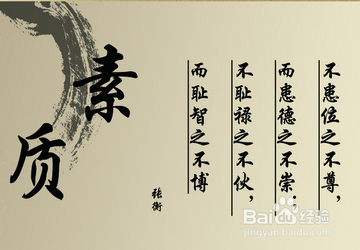 素质
不患位之不尊，
而患德之不崇；
不耻禄之不伙，
而耻智之不博
张衡
Baidu经验
jingyan.baidu.com